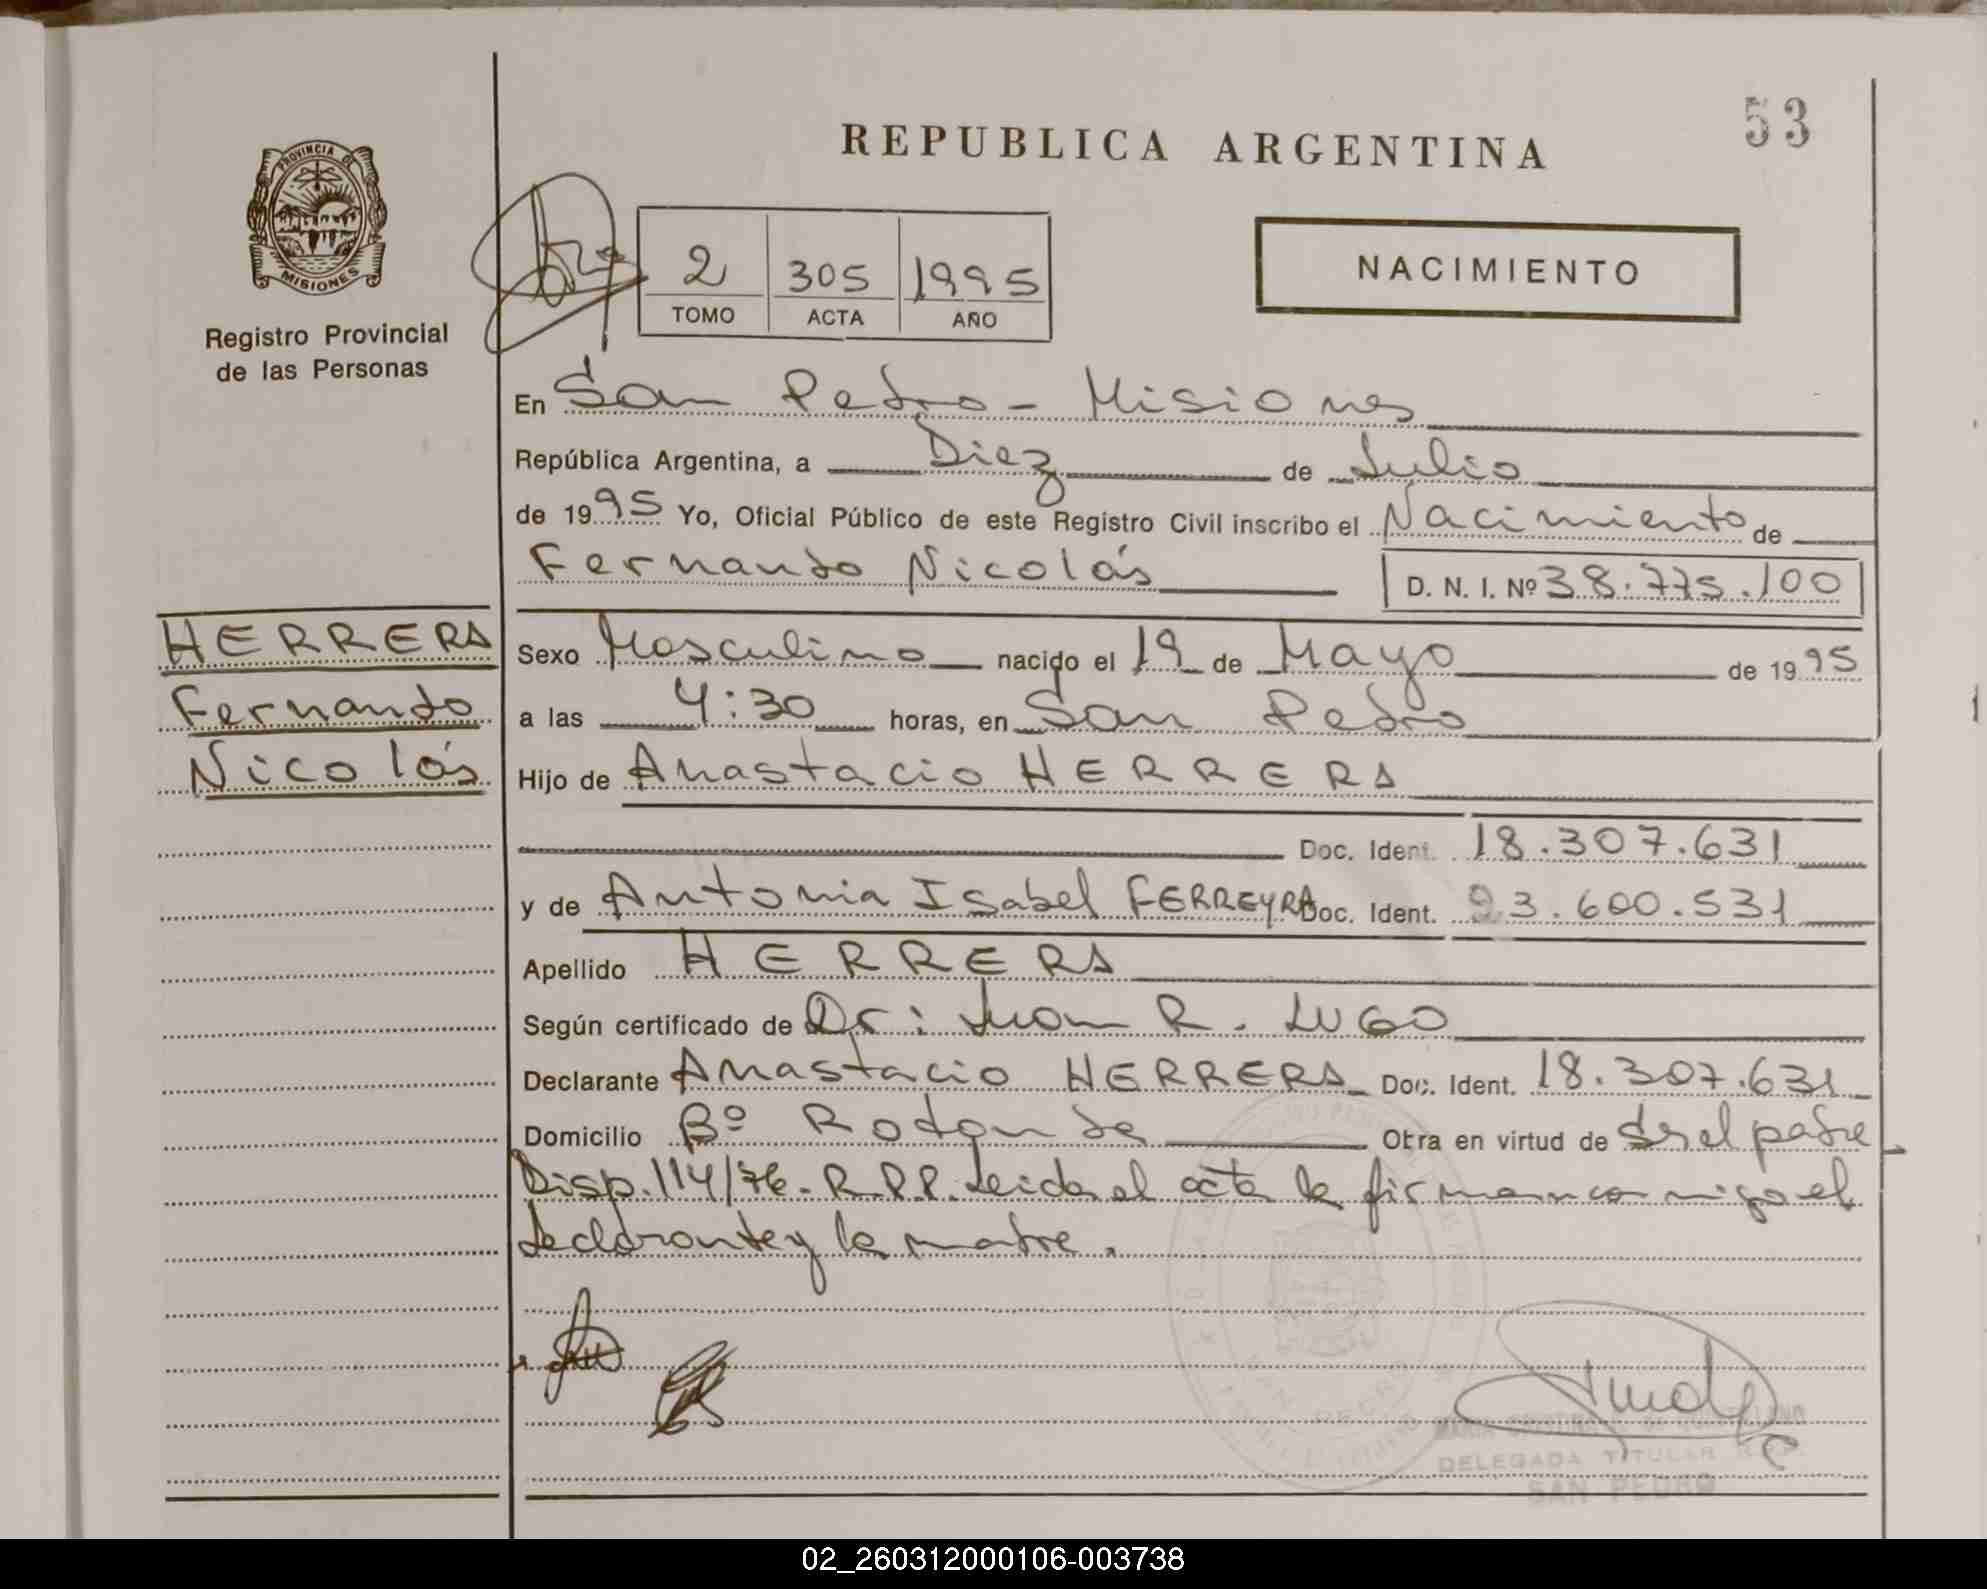 53
REPUBLICA ARGENTINA
PROVINCIA DE
MISIONES
Registro Provincial
de las Personas
2 305 1995
TOMO ACTA AÑO
NACIMIENTO
En San Pedro - Misiones
República Argentina, a Diez de Julio
de 1995 Yo, Oficial Público de este Registro Civil inscribo el Nacimiento de
Fernando Nicolás D. N. I. Nº 38.775.100
HERRERA
Fernando
Nicolás
Sexo Masculino nacido el 19 de Mayo de 1995
a las 4:30 horas, en San Pedro
Hijo de Anastacio HERRERA
Doc. Ident. 18.307.631
y de Antonia Isabel FERREYRA Doc. Ident. 93.600.531
Apellido HERRERA
Según certificado de Dr: Juan R. LUGO
Declarante Anastacio HERRERA Doc. Ident. 18.307.631
Domicilio Bº Rotonda Otra en virtud de Ser el padre
Disp. 114/76. R.P.P. Leida el acta la firman conmigo el
declarante y la madre.
DELEGADA TITULAR
SAN PEDRO
02_260312000106-003738